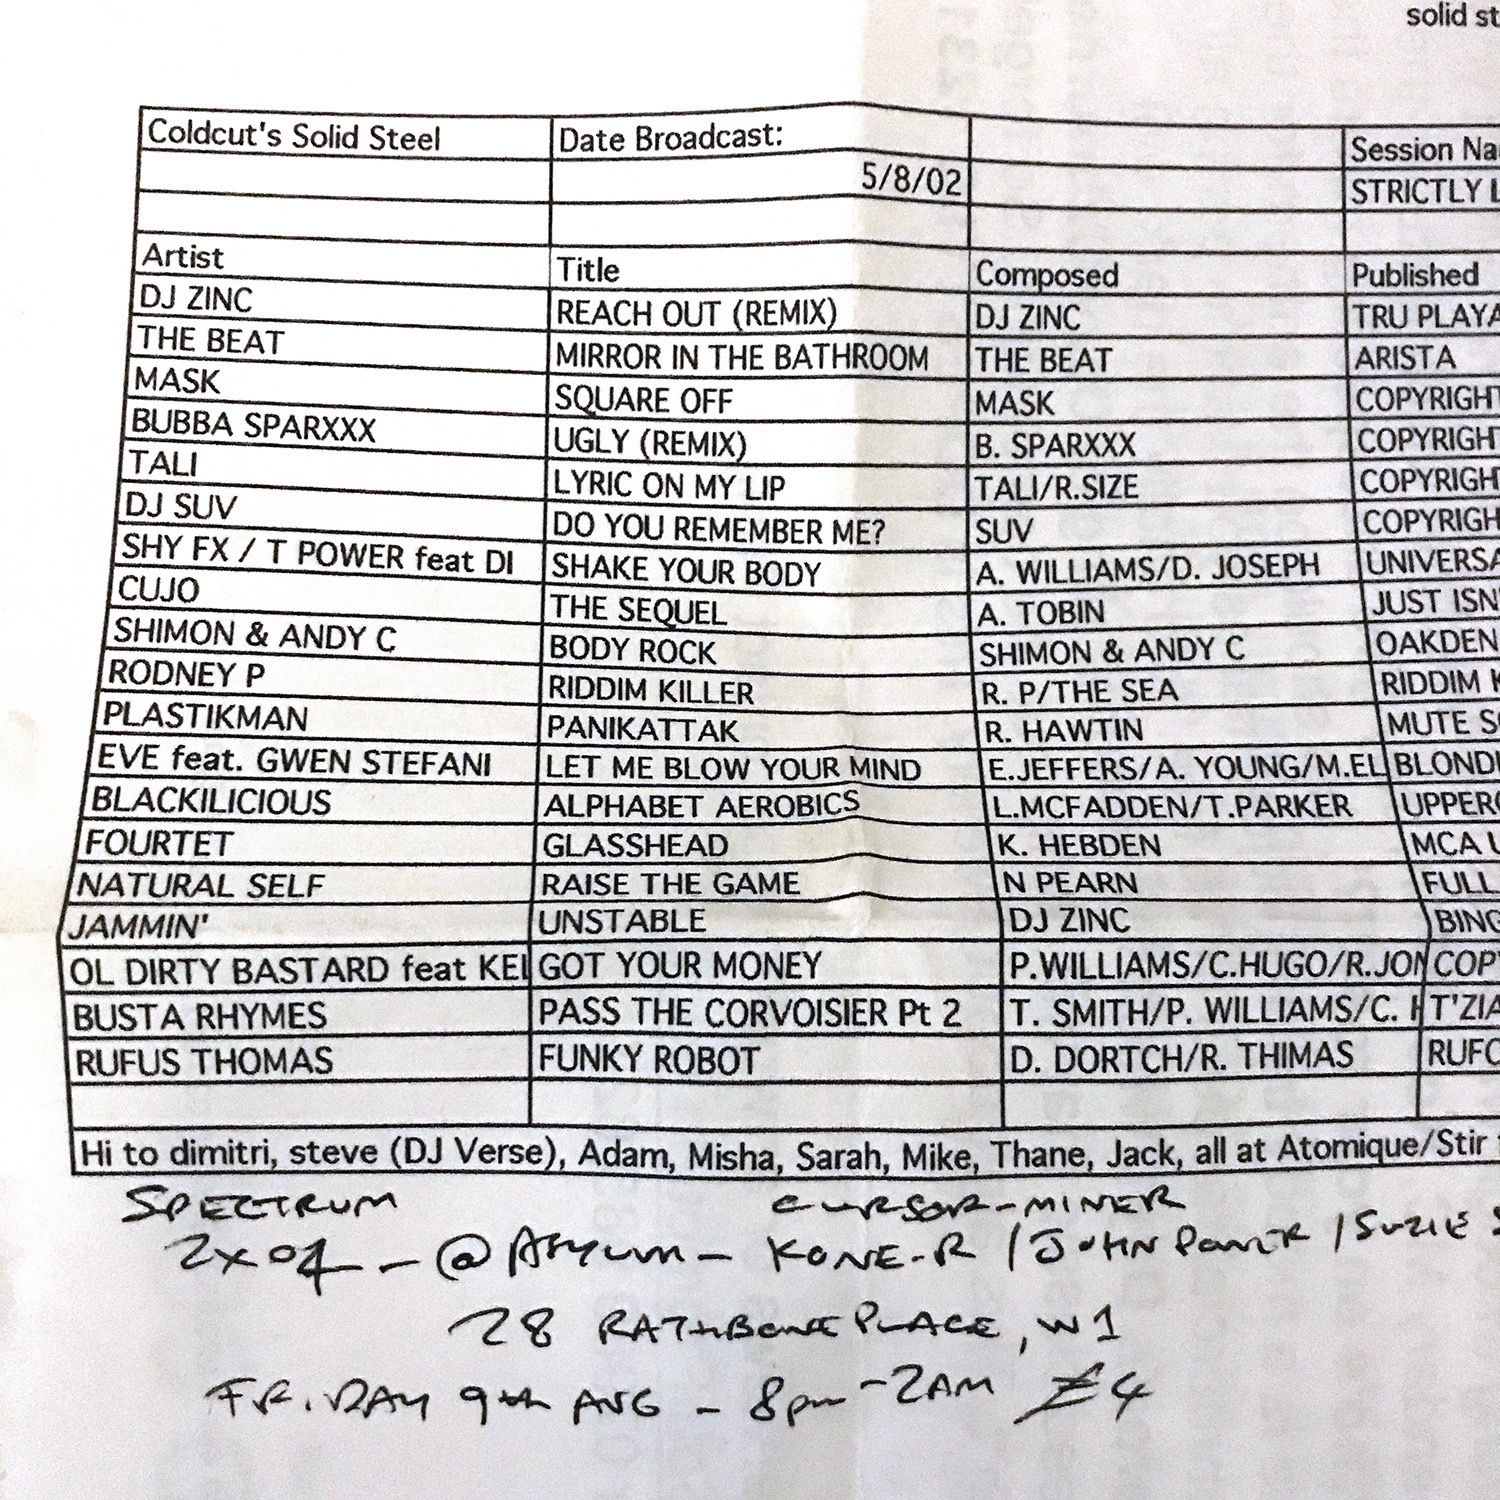 solid st
Coldcut's Solid Steel Date Broadcast: Session Na
5/8/02 STRICTLY L
Artist Title Composed Published
DJ ZINC REACH OUT (REMIX) DJ ZINC TRU PLAYA
THE BEAT MIRROR IN THE BATHROOM THE BEAT ARISTA
MASK SQUARE OFF MASK COPYRIGHT
BUBBA SPARXXX UGLY (REMIX) B. SPARXXX COPYRIGH
TALI LYRIC ON MY LIP TALI/R.SIZE COPYRIGH
DJ SUV DO YOU REMEMBER ME? SUV COPYRIGH
SHY FX / T POWER feat DI SHAKE YOUR BODY A. WILLIAMS/D. JOSEPH UNIVERSA
CUJO THE SEQUEL A. TOBIN JUST ISN'
SHIMON & ANDY C BODY ROCK SHIMON & ANDY C OAKDEN
RODNEY P RIDDIM KILLER R. P/THE SEA RIDDIM K
PLASTIKMAN PANIKATTAK R. HAWTIN MUTE S
EVE feat. GWEN STEFANI LET ME BLOW YOUR MIND E.JEFFERS/A. YOUNG/M.EL BLONDI
BLACKILICIOUS ALPHABET AEROBICS L.MCFADDEN/T.PARKER UPPERC
FOURTET GLASSHEAD K. HEBDEN MCA U
NATURAL SELF RAISE THE GAME N PEARN FULL
JAMMIN' UNSTABLE DJ ZINC BING
OL DIRTY BASTARD feat KEL GOT YOUR MONEY P.WILLIAMS/C.HUGO/R.JON COPY
BUSTA RHYMES PASS THE CORVOISIER Pt 2 T. SMITH/P. WILLIAMS/C. H T'ZIA
RUFUS THOMAS FUNKY ROBOT D. DORTCH/R. THIMAS RUFO
Hi to dimitri, steve (DJ Verse), Adam, Misha, Sarah, Mike, Thane, Jack, all at Atomique/Stir
SPECTRUM CURSOR-MINER
2x04 - @ ASYLUM - KONE-R / JOHN POWER / SUZIE
28 RATHBONE PLACE, W1
FRIDAY 9th AUG - 8pm - 2AM £4